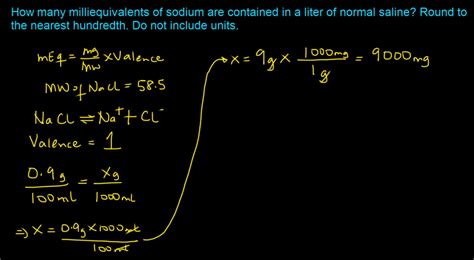 How many milliequivalents of sodium are contained in a liter of normal saline? Round to
the nearest hundredth. Do not include units.
mEq = mg/MW x Valence
MW of NaCl = 58.5
NaCl ⇌ Na+ + Cl-
Valence = 1
0.9g/100ml = xg/1000ml
⇒ X = 0.9g x 1000ml/100ml
X = 9g x 1000mg/1g = 9000mg